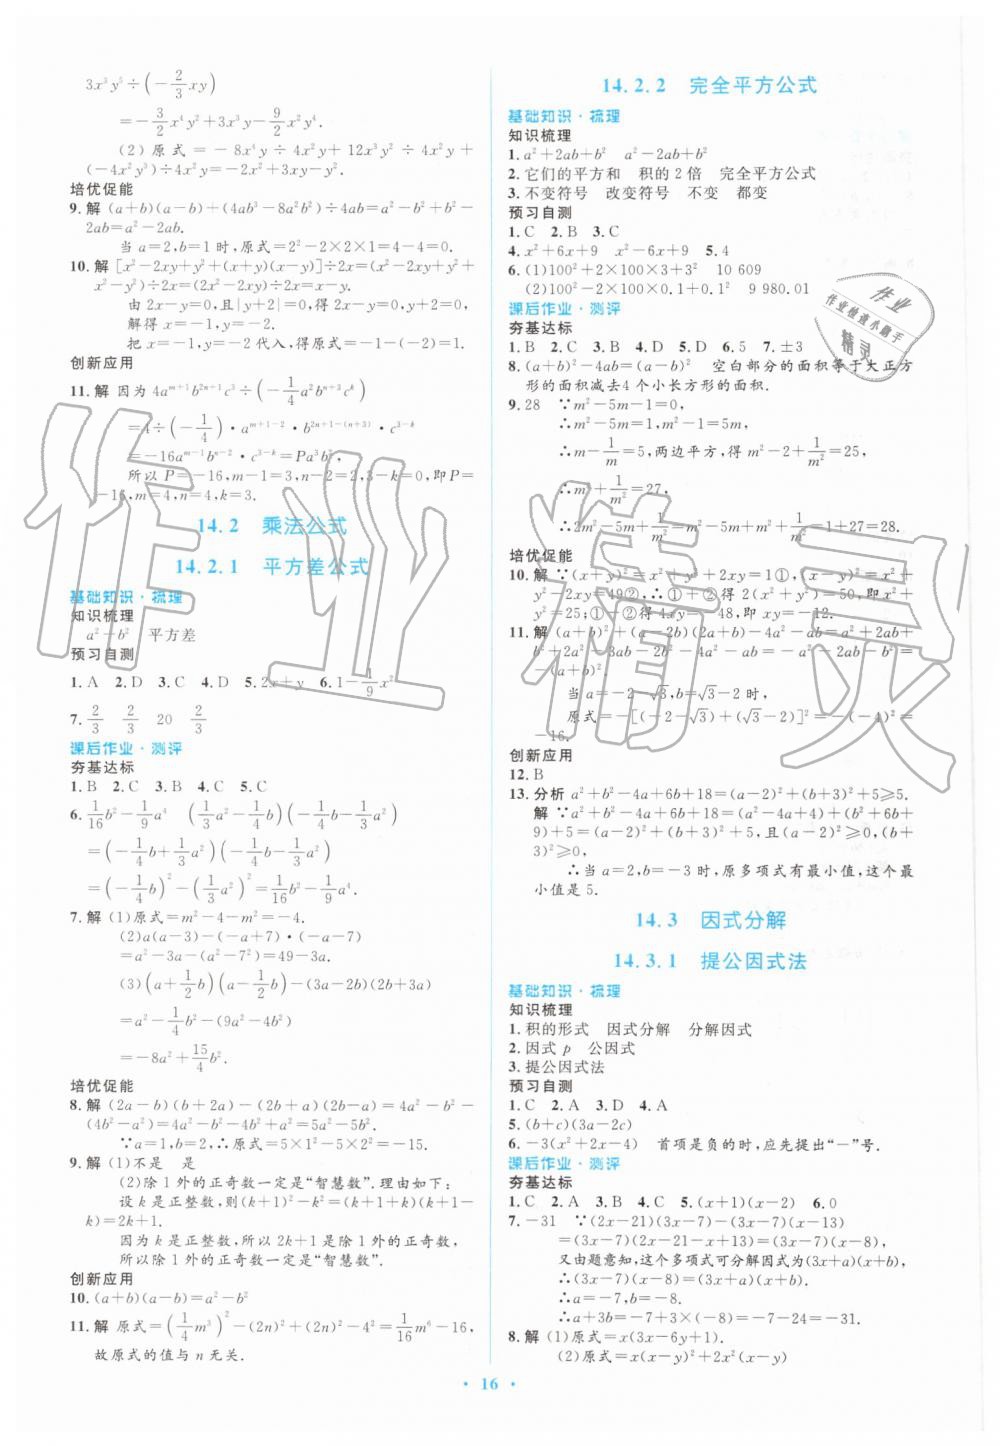 3x³y⁵÷(−2/3xy)
=−3/2x⁴y²+3x³y−9/2x²y⁴.
(2)原式=−8x⁴y÷4x²y+12x³y²÷4x²y+
(−4x²y³)÷4x²y=−2x²+3xy−y².
培优促能
9.解 (a+b)(a−b)+(4ab³−8a²b²)÷4ab=a²−b²+b²−
2ab=a²−2ab.
当a=2,b=1时,原式=2²−2×2×1=4−4=0.
10.解 [x²−2xy+y²+(x+y)(x−y)]÷2x=(x²−2xy+
y²+x²−y²)÷2x=(2x²−2xy)÷2x=x−y.
由2x−y=0,且|y+2|=0,得2x−y=0,y+2=0,
解得x=−1,y=−2.
把x=−1,y=−2代入得:原式=x−y=−1−(−2)=1.
创新应用
11.解 因为4aᵐ⁺¹b²ⁿ⁺¹c³÷(−1/4a²bⁿ⁺³cᵏ)
=4÷(−1/4)·aᵐ⁺¹⁻²·b²ⁿ⁺¹⁻⁽ⁿ⁺³⁾·c³⁻ᵏ
=−16aᵐ⁻¹bⁿ⁻²·c³⁻ᵏ=Pa³b²,
所以P=−16,m−1=3,n−2=2,3−k=0,即P=
−16,m=4,n=4,k=3.
14.2 乘法公式
14.2.1 平方差公式
基础知识·梳理
知识梳理
a²−b² 平方差
预习自测
1.A 2.D 3.C 4.D 5.2x+y 6.1−1/9x²
7.2/3 2/3 20 2/3
课后作业·测评
夯基达标
1.B 2.C 3.B 4.C 5.C
6.1/16b²−1/9a⁴ (1/3a²−1/4b)(−1/3a²−1/4b)
=(−1/4b+1/3a²)(−1/4b−1/3a²)
=(−1/4b)²−(1/3a²)²=1/16b²−1/9a⁴.
7.解 (1)原式=m²−4−m²=−4.
(2)a(a−3)−(−a+7)·(−a−7)
=a²−3a−(a²−7²)=49−3a.
(3)(a+1/2b)(a−1/2b)−(3a−2b)(2b+3a)
=a²−1/4b²−(9a²−4b²)
=−8a²+15/4b².
培优促能
8.解 (2a−b)(b+2a)−(2b+a)(2b−a)=4a²−b²−
(4b²−a²)=4a²−b²−4b²+a²=5a²−5b².
∵a=1,b=2,∴原式=5×1²−5×2²=−15.
9.解 (1)不是 是
(2)除1外的正奇数一定是“智慧数”.理由如下:
设k是正整数,则(k+1)²−k²=(k+1+k)(k+1−
k)=2k+1.
因为k是正整数,所以2k+1是除1外的正奇数,
所以除1外的正奇数一定是“智慧数”.
创新应用
10.(a+b)(a−b)=a²−b²
11.解 原式=(1/4m³)²−(2n)²+(2n)²−4²=1/16m⁶−16,
故原式的值与n无关.
14.2.2 完全平方公式
基础知识·梳理
知识梳理
1.a²+2ab+b² a²−2ab+b²
2.它们的平方和 积的2倍 完全平方公式
3.不变符号 改变符号 不变 都变
预习自测
1.C 2.B 3.C
4.x²+6x+9 x²−6x+9 5.4
6.(1)100²+2×100×3+3² 10 609
(2)100²−2×100×0.1+0.1² 9 980.01
课后作业·测评
夯基达标
1.B 2.C 3.A 4.D 5.D 6.5 7.±3
8.(a+b)²−4ab=(a−b)² 空白部分的面积等于大正方
形的面积减去4个小长方形的面积.
9.28 ∵m²−5m−1=0,
∴m²−5m=1,m²−1=5m,
∴m−1/m=5,两边平方,得m²−2+1/m²=25,
∴m²+1/m²=27,
∴2m²−5m+1/m²=m²−5m+m²+1/m²=1+27=28.
培优促能
10.解 ∵(x+y)²=x²+y²+2xy=1①,(x−y)²=x²+
y²−2xy=49②,∴①+②得2(x²+y²)=50,即x²+
y²=25;①−②得4xy=−48,即xy=−12.
11.解 (a+b)²+(a−2b)(2a+b)−4a²−ab=a²+2ab+
b²+2a²−3ab−2b²−4a²−ab=−a²−2ab−b²=
−(a+b)².
当a=−2−√3,b=√3−2时,
原式=−[(−2−√3)+(√3−2)]²=−(−4)²=
−16.
创新应用
12.B
13.分析 a²+b²−4a+6b+18=(a−2)²+(b+3)²+5≥5.
解 ∵a²+b²−4a+6b+18=(a²−4a+4)+(b²+6b+
9)+5=(a−2)²+(b+3)²+5,且(a−2)²≥0,(b+
3)²≥0,
∴当a=2,b=−3时,原多项式有最小值,这个最
小值是5.
14.3 因式分解
14.3.1 提公因式法
基础知识·梳理
知识梳理
1.积的形式 因式分解 分解因式
2.因式p 公因式
3.提公因式法
预习自测
1.C 2.A 3.D 4.A
5.(b+c)(3a−2c)
6.−3(x²+2x−4) 首项是负的时,应先提出“−”号.
课后作业·测评
夯基达标
1.C 2.A 3.B 4.C 5.(x+1)(x−2) 6.0
7.−31 ∵(2x−21)(3x−7)−(3x−7)(x−13)
=(3x−7)(2x−21−x+13)=(3x−7)(x−8),
又由题意知,这个多项式可分解因式为(3x+a)(x+b),
∴(3x−7)(x−8)=(3x+a)(x+b).
∴a=−7,b=−8.
∴a+3b=−7+3×(−8)=−31.
8.解 (1)原式=x(3x−6y+1).
(2)原式=x²(x+y)²+2x²(x+y)
作业
作业检查小助手
精灵
作业精灵
• 16 •